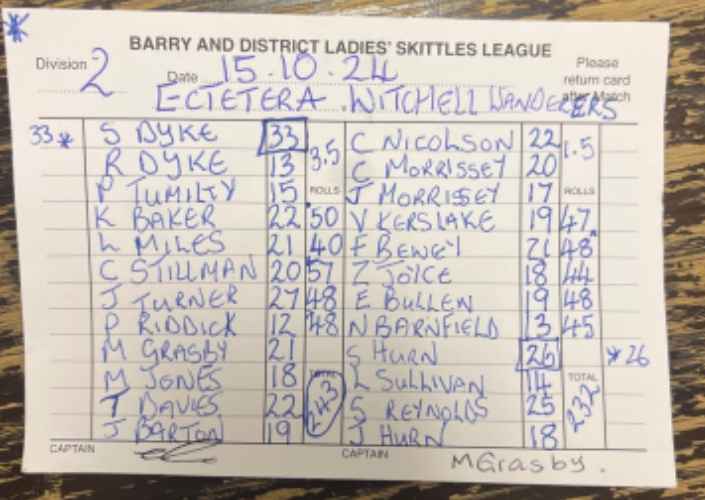 *
BARRY AND DISTRICT LADIES' SKITTLES LEAGUE
Division 2 Date 15.10.24 Please return card after Match
ECTETERA . WITCHELL WANDERERS
33* S DYKE 33 3.5 C NICOLSON 22 1.5
R DYKE 13 C MORRISSEY 20
P TUMILTY 15 ROLLS J MORRISSEY 17 ROLLS
K BAKER 22 50 V KERSLAKE 19 47
L MILES 21 40 F BEWEY 21 48
C STILLMAN 20 57 Z JOYCE 18 44
J TURNER 27 48 E BULLEN 19 48
P RIDDICK 12 48 N BARNFIELD 13 45
M GRASBY 21 S HURN 26 *26
M JONES 18 TOTAL L SULLIVAN 14 TOTAL
T DAVIES 22 243 S REYNOLDS 25 232
J BARTON 19 J HURN 18
CAPTAIN CAPTAIN MGrasby.